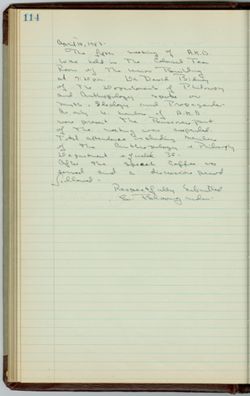 114
April 14, 1983.
The fifth meeting of A.K.D.
was held in the Colonial Tea
Room of the Union Building
at 7:30 pm. Dr. David
of the Department of Philosophy
and Anthropology spoke on
Myth, Ideology and Propaganda.
As only 6 members of A.K.D.
were present the Business part
of the meeting was suspended.
Total attendance including members
of the Anthropology & Philosophy
Department equaled 35.
After the speech Coffee was
served and a discussion period
followed.
Respectfully Submitted